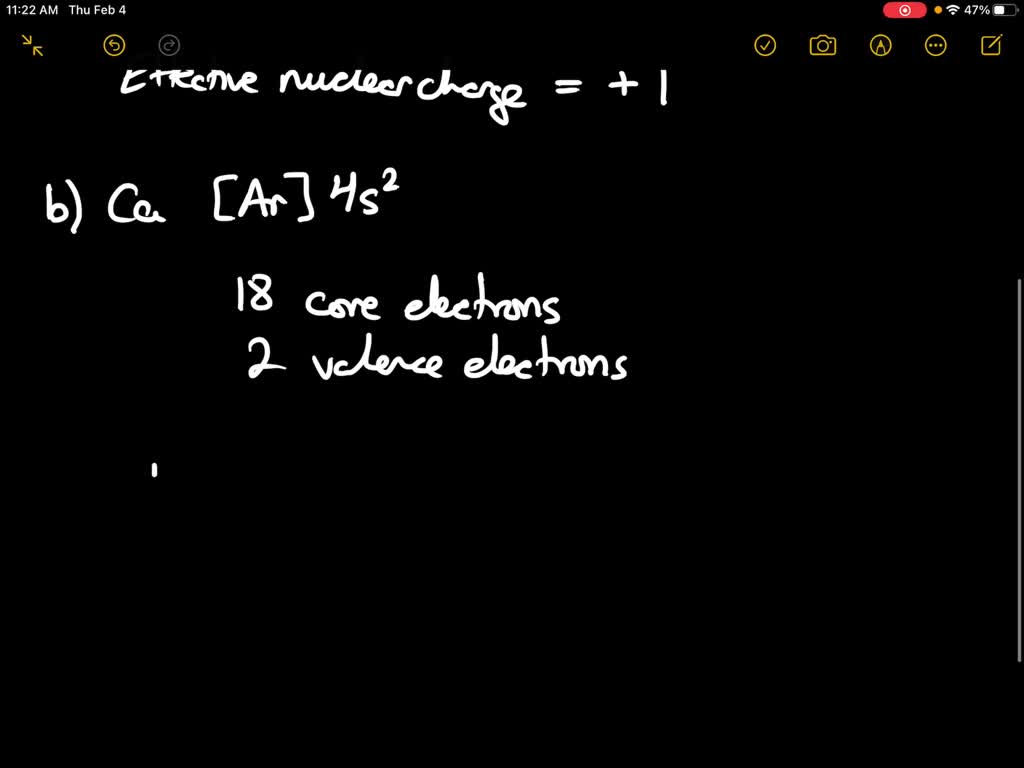 11:22 AM Thu Feb 4 47%
Effective nuclear charge = + 1
b) Ca [Ar] 4s²
18 core electrons
2 valence electrons